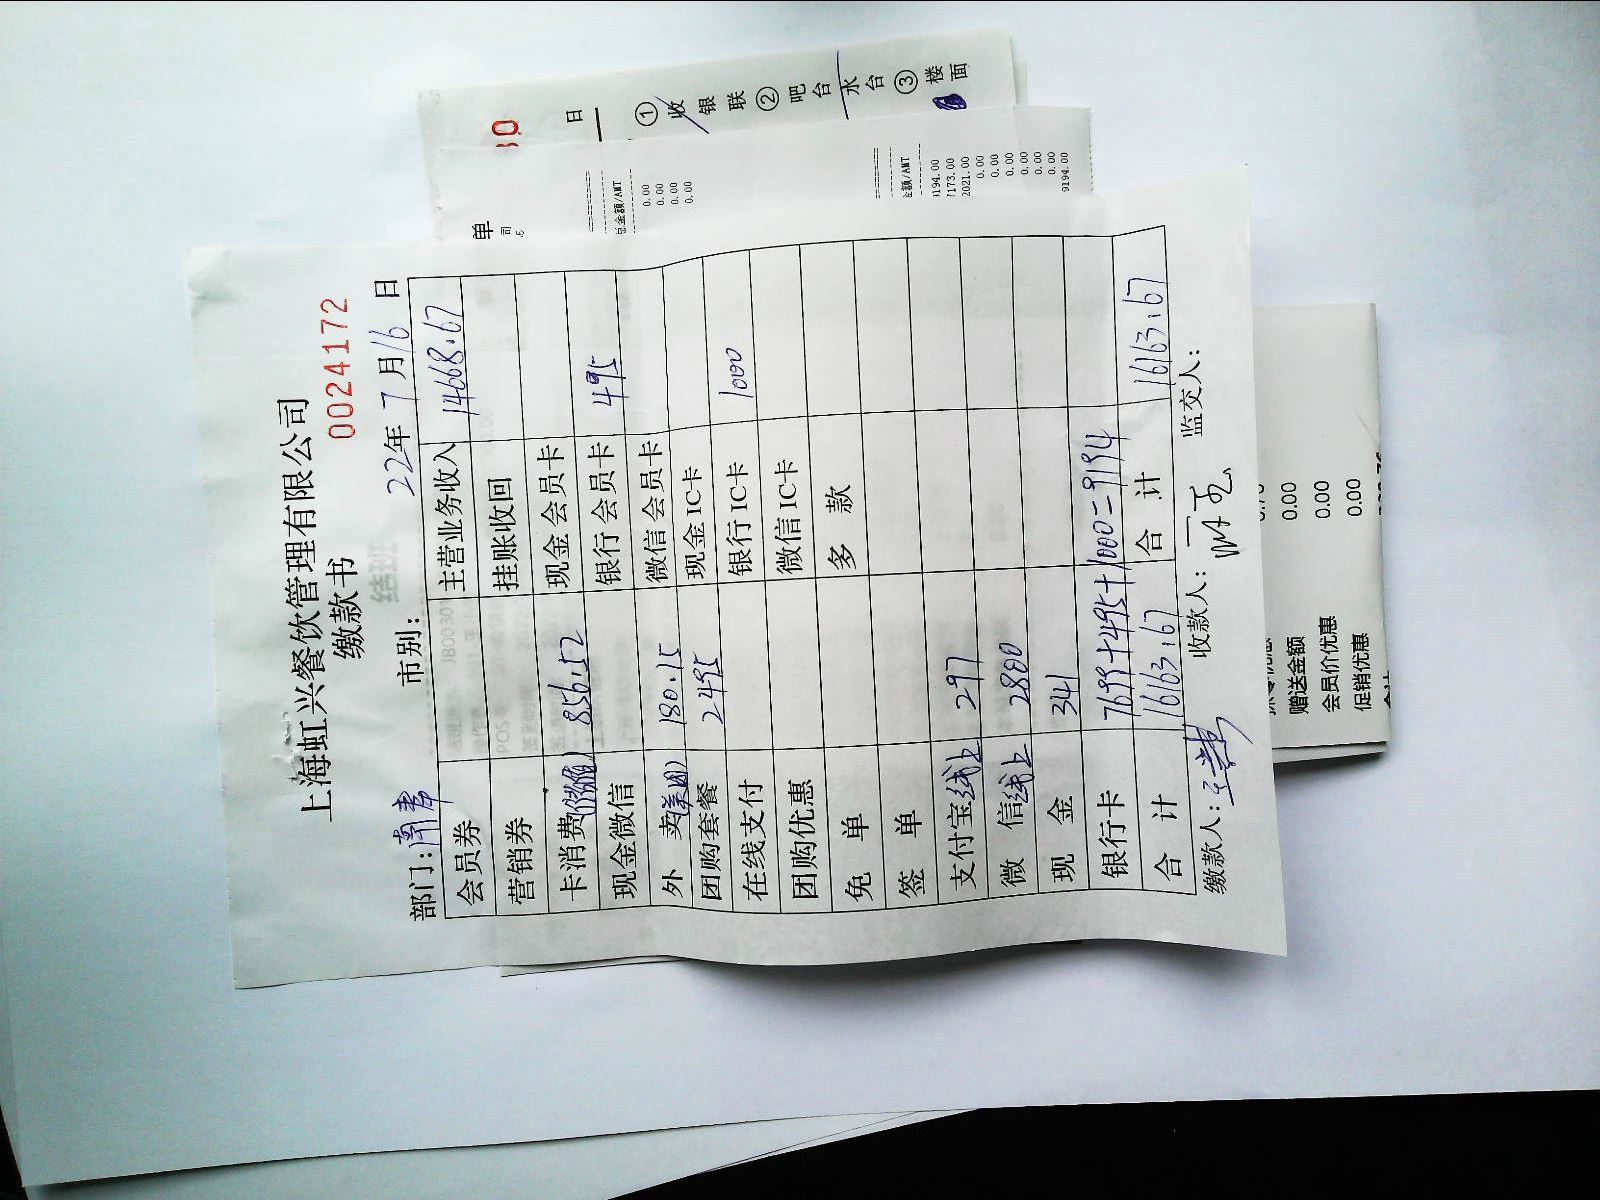 上海虹兴餐饮管理有限公司
缴款书 0024172
部门: 市别: 22年7月16日
会员券 主营业务收入 14668.67
营销券 挂账收回
卡消费 856.52 现金会员卡
现金微信 银行会员卡 495
外卖(美团) 180.15 微信会员卡
团购套餐 2495 现金IC卡
在线支付 银行IC卡 1000
团购优惠 微信IC卡
免单 多款
签单
支付宝线上 297
微信线上 2800
现金 341
银行卡 7699+495+1000=9194
合计 16163.67 合计 16163.67
缴款人: 收款人: 监交人:
日
①收银联②吧台水台③楼面
单
司
总金额/AMT
0.00
0.00
0.00
0.00
金额/AMT
7173.00
2021.00
0.00
0.00
0.00
0.00
0.00
9194.00
0.00
赠送金额 0.00
会员价优惠 0.00
促销优惠 0.00